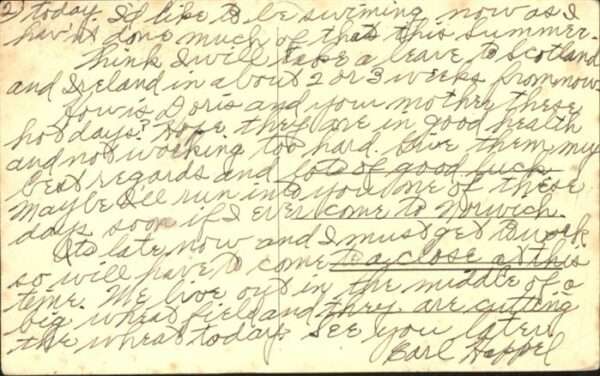 2) today. I'd like to be swiming now as I
hav'nt done much of that this summer.
Think I will take a leave to Scotland
and Ireland in about 2 or 3 weeks from now.
How is Doris and your mother these
hot days? Hope they are in good health
and not working too hard. Give them my
best regards and lots of good luck.
Maybe I'll run into you one of these
days soon if I ever come to Norwich.
Its late now and I must get to work
so will have to come to a close at this
time. We live out in the middle of a
big wheat field and they are cutting
the wheat today. See you later,
Earl